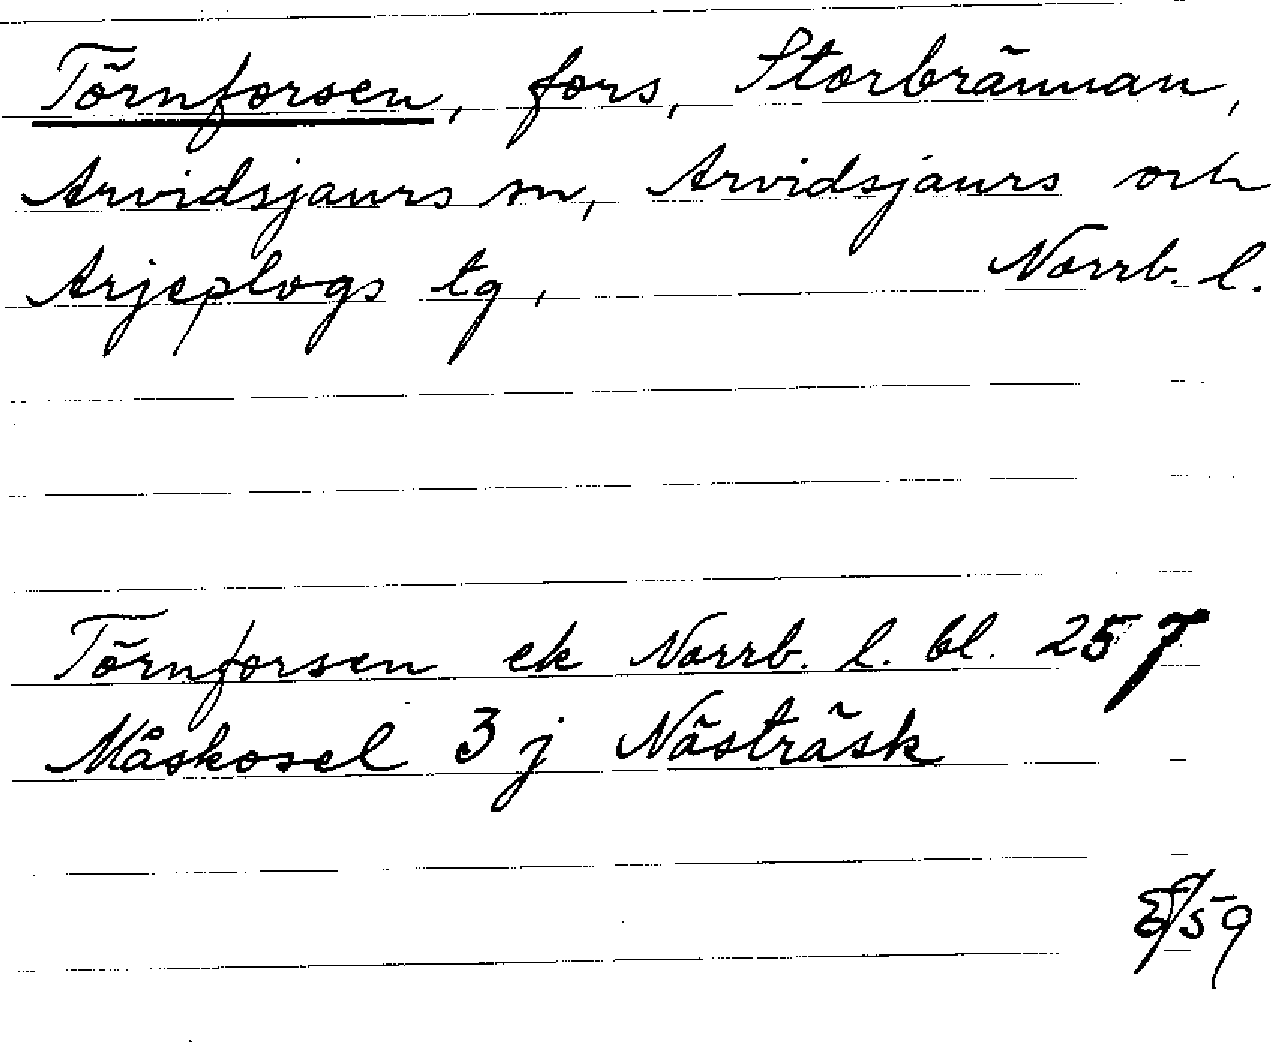 Törnforsen, fors, Storbrännan,
Arvidsjaurs sn, Arvidsjaurs och
Arjeplogs tg, Norrb. l.
Törnforsen ek Norrb. l. bl. 257
Måskosel 3 j Nästräsk
59